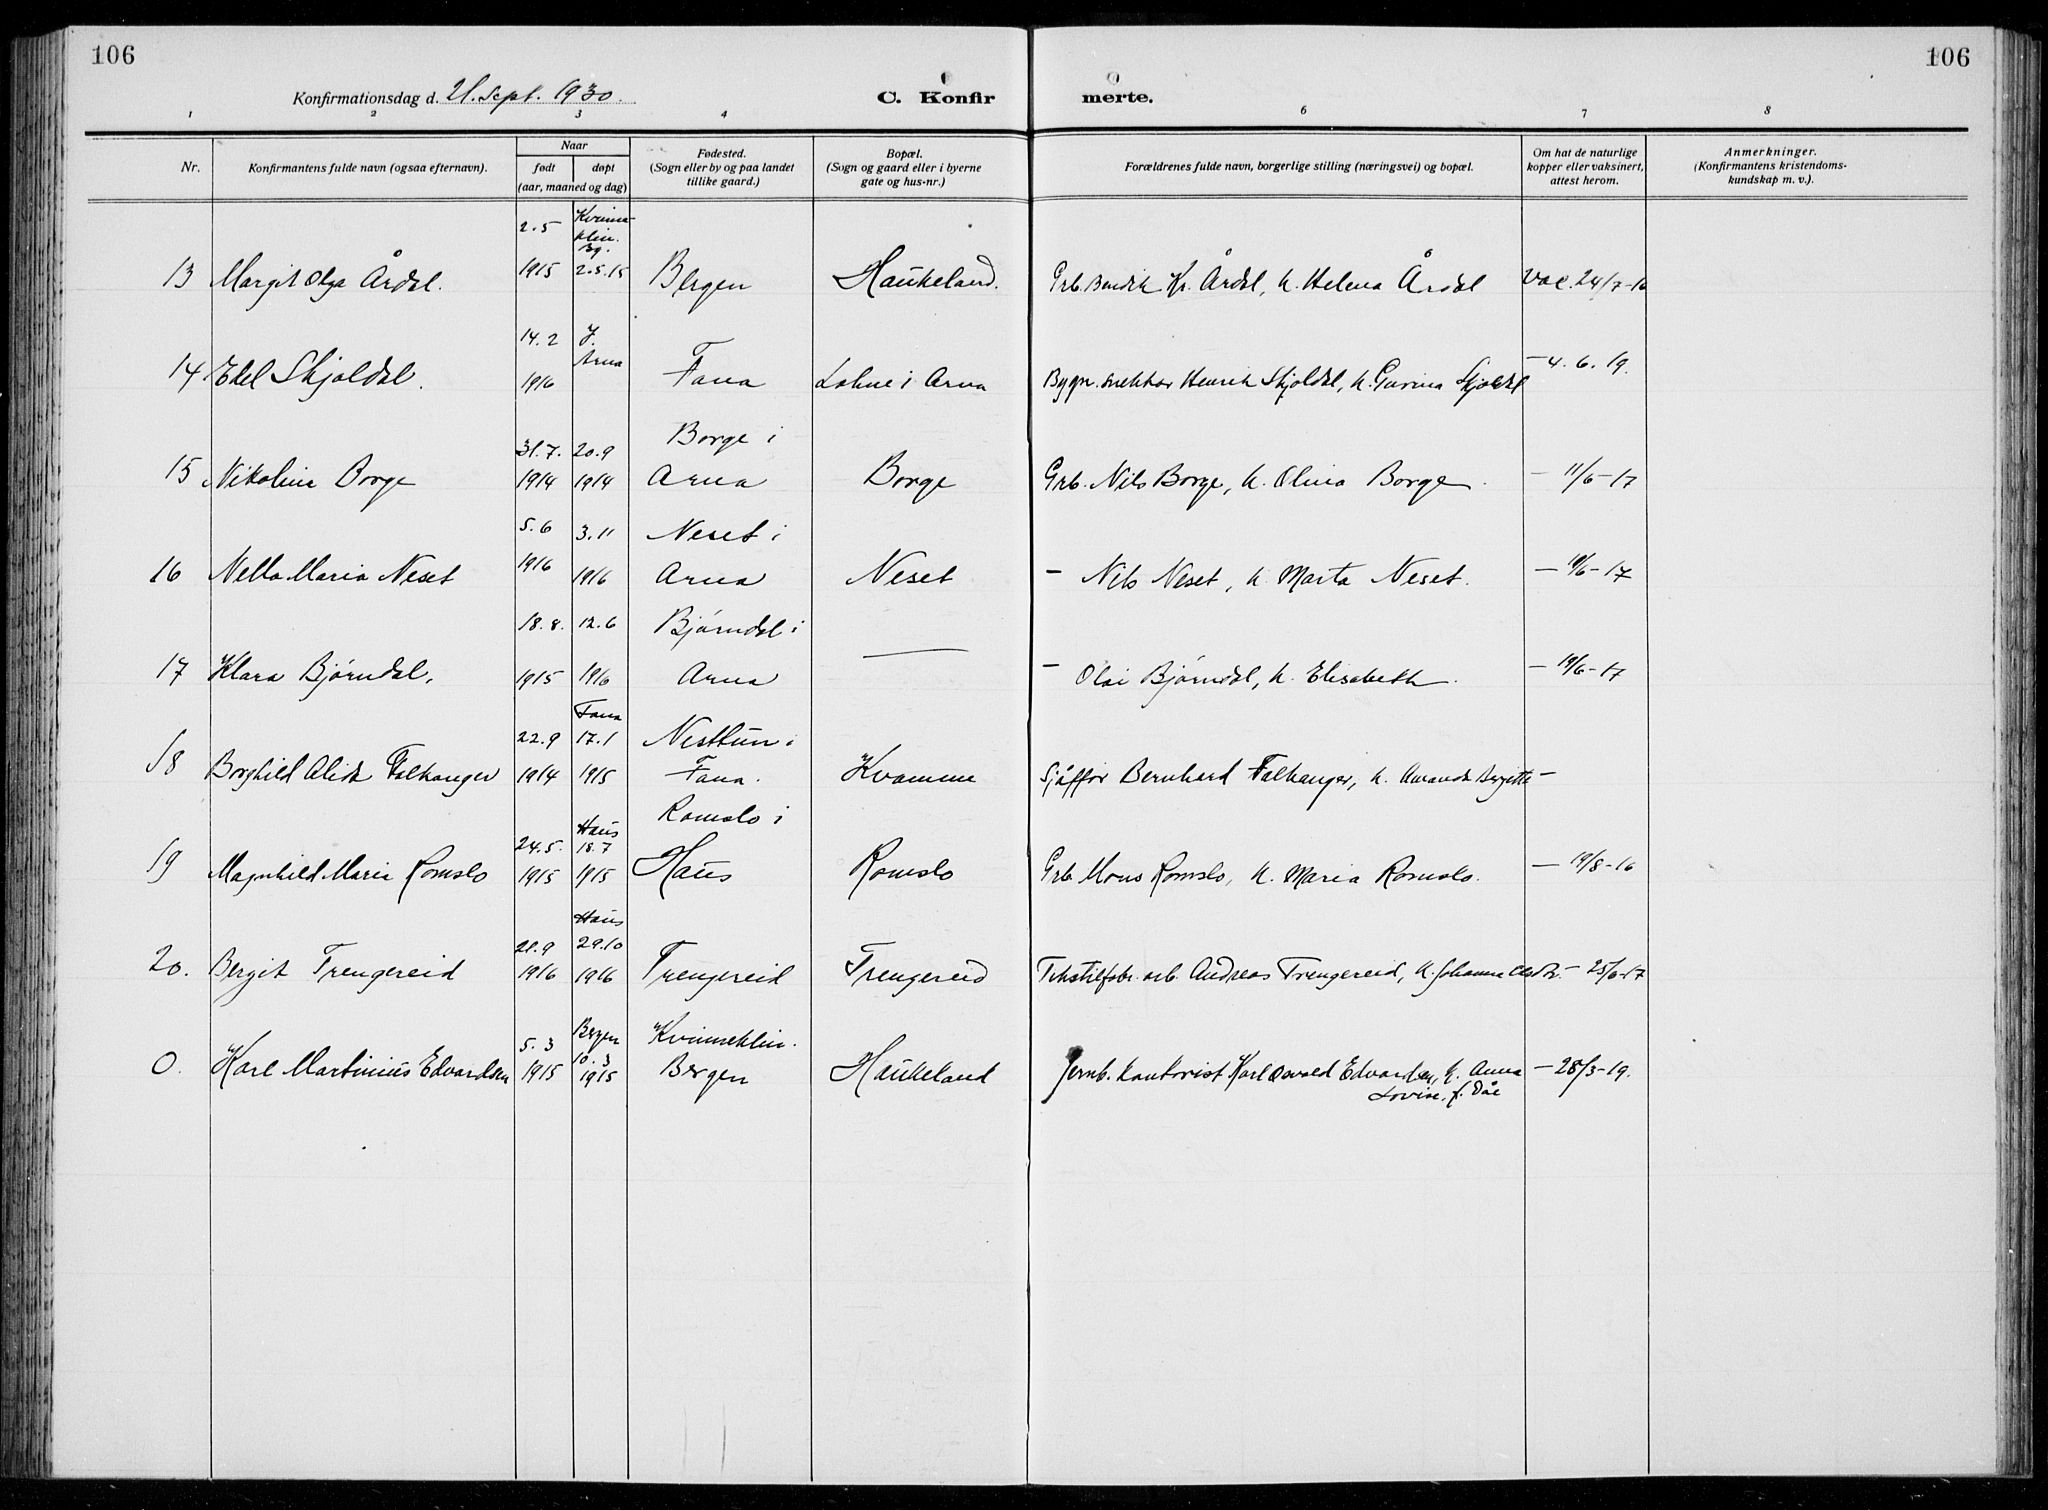 106
106
Konfirmationsdag d. 21. Sept. 1930.
C. Konfir
merte.
1 2 3 4 6 7 8
Nr.
Konfirmantens fulde navn (ogsaa efternavn).
Naar
født
døpt
(aar, maaned og dag)
Fødested.
(Sogn eller by og paa landet
tillike gaard.)
Bopæl.
(Sogn og gaard eller i byerne
gate og hus-nr.)
Forældrenes fulde navn, borgerlige stilling (næringsvei) og bopæl.
Om hat de naturlige
kopper eller vaksinert,
attest herom.
Anmerkninger.
(Konfirmantens kristendoms-
kundskap m. v.).
2.5 Kvinne
klin.
Bg.
13 Margit Olga Årdal. 1915 2.5.15 Bergen Haukeland. Grb. Bendik Kr. Årdal, h. Helena Årdal Vac. 24/7-16
14.2
Arna
14 Edel Skjoldal. 1916 Fana Lohne i Arna Bygn. snekker Henrik Skjoldal, h. Gurina Skjoldal - 4.6.19.
31.7. 20.9 Borge i
15 Nikoline Borge 1914 1914 Arna Borge Grb. Nils Borge, h. Olina Borge. - 11/6-17
5.6 3.11 Neset i
16 Nella Maria Neset 1916 1916 Arna Neset - Nils Neset, h. Marta Neset. - 19/6-17
18.8. 12.6 Bjørndal i
17 Klara Bjørndal. 1915 1916 Arna — - Olai Bjørndal, h. Elisabeth. - 19/6-17
Fana
22.9 17.1 Nesttun i
18 Borghild Alida Falkanger 1914 1915 Fana. Kvamme Sjåffør Bernhard Falkanger, h. Amanda Bergitte -
Romslo i
Haus
24.5. 18.7
19 Magnhild Maria Romslo 1915 1915 Haus Romslo Grb. Mons Romslo, h. Maria Romslo. - 19/8-16
Haus
21.9 29.10
20. Bergit Trengereid 1916 1916 Trengereid Trengereid Tekstilfabr. arb. Andreas Trengereid, h. Johanna Olsdtr. - 25/6-17
Bergen Kvinneklin.
5.3 10.3
0. Karl Martinius Edvardsen 1915 1915 Bergen Haukeland Jernb. kontorist Karl Osvald Edvardsen, h. Anna - 28/3-19.
Lovise, f. Dåe